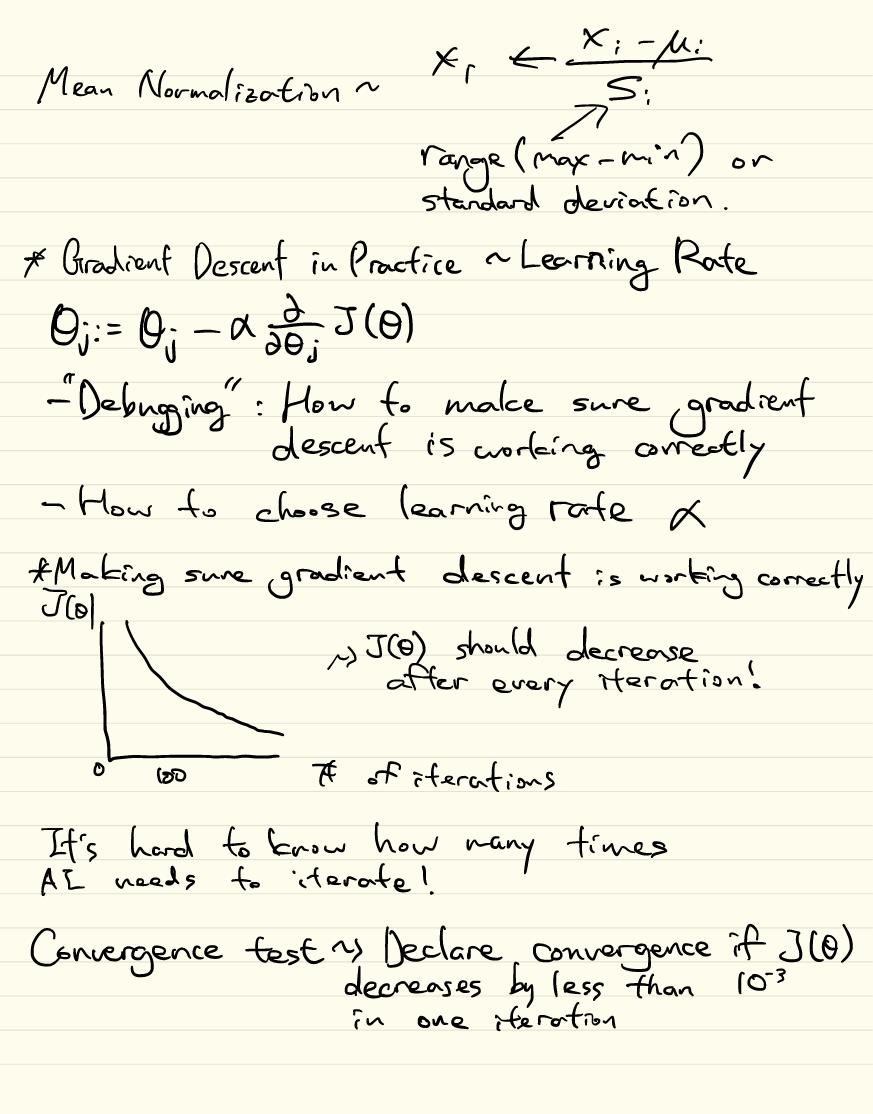 Mean Normalization ~ x₁ ← (xᵢ - μᵢ) / Sᵢ
range (max - min) or
standard deviation.
* Gradient Descent in Practice ~ Learning Rate
θⱼ := θⱼ - α ∂/∂θⱼ J(θ)
- "Debugging" : How to make sure gradient
descent is working correctly
- How to choose learning rate α
* Making sure gradient descent is working correctly
J(θ)
~> J(θ) should decrease
after every iteration!
0 100 # of iterations
It's hard to know how many times
AI needs to iterate!
Convergence test ~> Declare convergence if J(θ)
decreases by less than 10⁻³
in one iteration